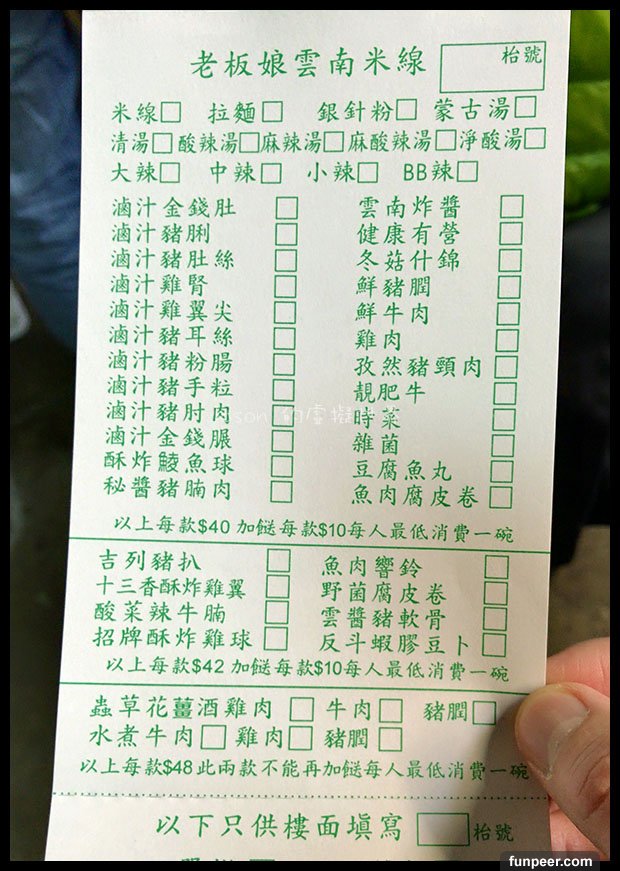 老板娘雲南米線
枱號
米線□ 拉麵□ 銀針粉□ 蒙古湯□
清湯□ 酸辣湯□ 麻辣湯□ 麻酸辣湯□ 淨酸湯□
大辣□ 中辣□ 小辣□ BB辣□
滷汁金錢肚 □ 雲南炸醬 □
滷汁豬脷 □ 健康有營 □
滷汁豬肚絲 □ 冬菇什錦 □
滷汁雞腎 □ 鮮豬膶 □
滷汁雞翼尖 □ 鮮牛肉 □
滷汁豬耳絲 □ 雞肉 □
滷汁豬粉腸 □ 孜然豬頸肉 □
滷汁豬手粒 □ 靚肥牛 □
滷汁豬肘肉 □ 時菜 □
滷汁金錢𦟌 □ 雜菌 □
酥炸鯪魚球 □ 豆腐魚丸 □
秘醬豬腩肉 □ 魚肉腐皮卷 □
以上每款$40 加餸每款$10每人最低消費一碗
吉列豬扒 □ 魚肉響鈴 □
十三香酥炸雞翼 □ 野菌腐皮卷 □
酸菜辣牛腩 □ 雲醬豬軟骨 □
招牌酥炸雞球 □ 反斗蝦膠豆卜 □
以上每款$42 加餸每款$10每人最低消費一碗
蟲草花薑酒雞肉 □ 牛肉□ 豬膶□
水煮牛肉□ 雞肉□ 豬膶□
以上每款$48此兩款不能再加餸每人最低消費一碗
以下只供樓面填寫 □ 枱號
funpeer.com